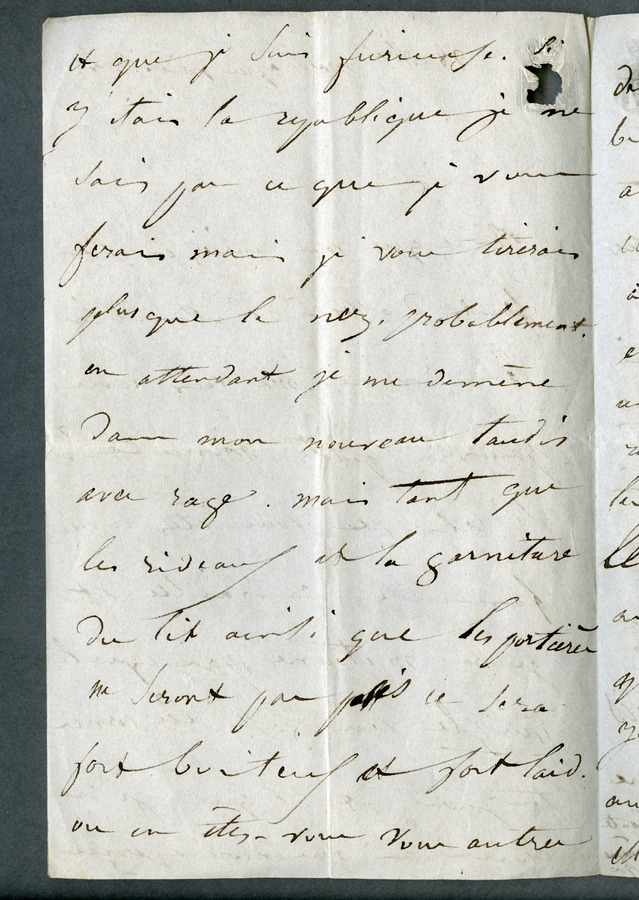 et que je suis furieuse. Si
j'étais la republique je ne
sais pas ce que je vous
ferais mais je vous tirerais
plus que le nez, probablement.
en attendant je me démène
dans mon nouveau taudis
avec rage. mais tant que
les rideaux et la garniture
du lit ainsi que les portières
ne seront pas ce sera
fort boiteux et fort laid.
ou en êtes-vous vous autres